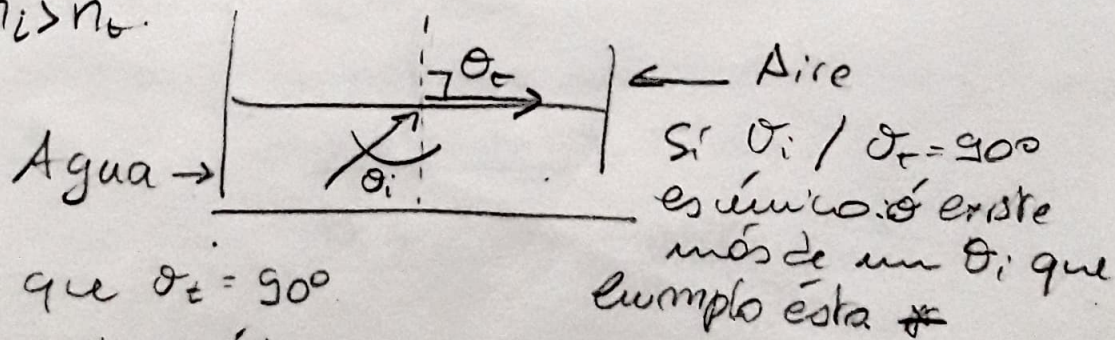 ni>nt.
θt
← Aire
Agua →
θi
Si θi / θt = 90º
es único. ó existe
más de un θi que
cumpla ésta
que θt = 90º